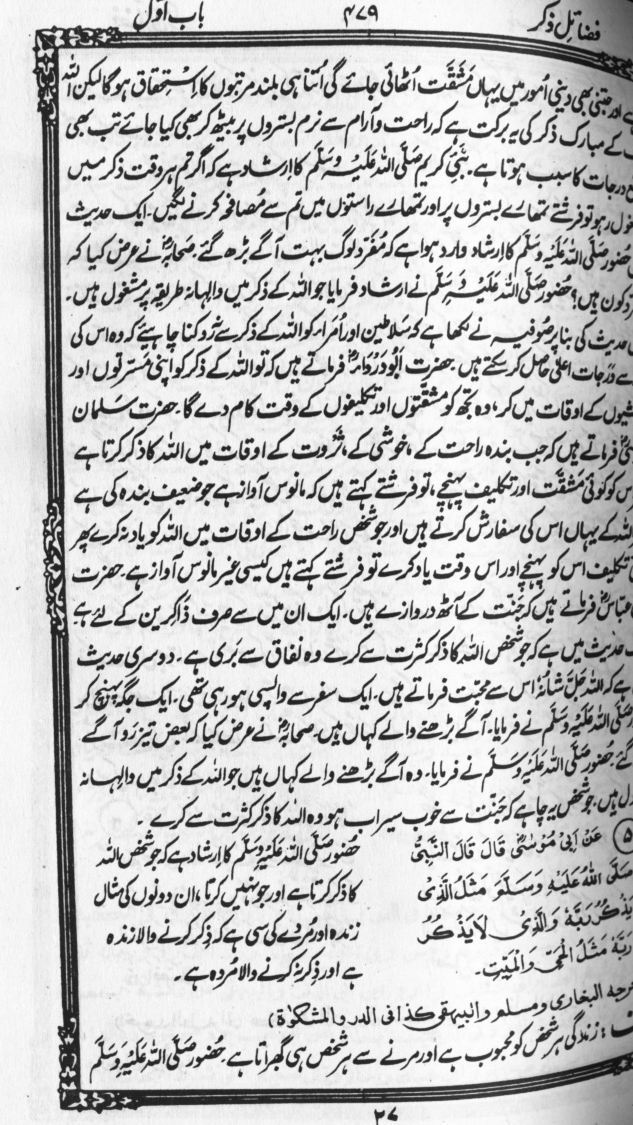 فضائل ذکر ۴۷۹ باب اول
اور جتنی بھی دینی اُمور میں یہاں مَشَقَّت اٹھائی جائے گی اُتنا ہی بلند مرتبوں کا اِسْتحقاق ہوگا لیکن اللہ
کے مبارک ذکر کی یہ برکت ہے کہ راحت و آرام سے نرم بستروں پر بیٹھ کر بھی کیا جائے تب بھی
درجات کا سبب ہوتا ہے۔ نبیِّ کریم صَلَّی اللہُ عَلَیْہِ وَسَلَّم کا اِرشاد ہے کہ اگر تم ہر وقت ذکر میں
رہو تو فرشتے تمھارے بستروں پر اور تمھارے راستوں میں تم سے مُصافحہ کرنے لگیں۔ ایک حدیث
حُضور صَلَّی اللہُ عَلَیْہِ وَسَلَّم کا اِرشاد وارد ہوا ہے کہ مُفَرِّد لوگ بہت آگے بڑھ گئے۔ صحابہؓ نے عرض کیا کہ
کون ہیں؟ حُضور صَلَّی اللہُ عَلَیْہِ وَسَلَّم نے ارشاد فرمایا جو اللہ کے ذکر میں والہانہ طریقہ پر مشغول ہیں۔
حدیث کی بنا پر صوفیہ نے لکھا ہے کہ سَلاطین اور اُمَراء کو اللہ کے ذکر سے نہ روکنا چاہیئے کہ وہ اس کی
سے دَرَجات اعلیٰ حاصل کر سکتے ہیں۔ حضرت ابُو دَرْدَاءؓ فرماتے ہیں کہ تو اللہ کے ذکر کو اپنی مَسَرتوں اور
کے اوقات میں کر، وہ تجھ کو مشقَّتوں اور تکلیفوں کے وقت کام دے گا۔ حضرت سَلمان
فرماتے ہیں کہ جب بندہ راحت کے، خوشی کے، ثَروت کے اوقات میں اللہ کا ذکر کرتا ہے
اس کو کوئی مَشَقَّت اور تکلیف پہنچے، تو فرشتے کہتے ہیں کہ مانوس آواز ہے جو ضعیف بندہ کی ہے
اللہ کے یہاں اس کی سفارش کرتے ہیں اور جو شخص راحت کے اوقات میں اللہ کو یاد نہ کرے پھر
تکلیف اس کو پہنچے اور اس وقت یاد کرے تو فرشتے کہتے ہیں کیسی غیر مانوس آواز ہے۔ حضرت
عباسؓ فرماتے ہیں کہ جنّت کے آٹھ دروازے ہیں۔ ایک ان میں سے صرف ذاکرین کے لئے ہے
حدیث میں ہے کہ جو شخص اللہ کا ذکر کثرت سے کرے وہ نفاق سے بَری ہے۔ دوسری حدیث
ہے کہ اللہ جَلَّ شانُہٗ اس سے محبت فرماتے ہیں۔ ایک سفر سے واپسی ہو رہی تھی۔ ایک جگہ پہنچ کر
صَلَّی اللہُ عَلَیْہِ وَسَلَّم نے فرمایا۔ آگے بڑھنے والے کہاں ہیں۔ صحابہؓ نے عرض کیا کہ بعض تیز رَو آگے
گئے۔ حُضور صَلَّی اللہُ عَلَیْہِ وَسَلَّم نے فرمایا۔ وہ آگے بڑھنے والے کہاں ہیں جو اللہ کے ذکر میں والہانہ
ہیں۔ جو شخص یہ چاہے کہ جنّت سے خوب سیراب ہو وہ اللہ کا ذکر کثرت سے کرے۔
(۵) عَنْ اَبِیْ مُوْسٰیؓ قَالَ قَالَ النَّبِیُّ
صَلَّی اللہُ عَلَیْہِ وَسَلَّمَ مَثَلُ الَّذِیْ
یَذْکُرُ رَبَّہٗ وَالَّذِیْ لَا یَذْکُرُ
رَبَّہٗ مَثَلُ الْحَیِّ وَالْمَیِّتِ۔
حُضور صَلَّی اللہُ عَلَیْہِ وَسَلَّم کا اِرشاد ہے کہ جو شخص اللہ
کا ذکر کرتا ہے اور جو نہیں کرتا، ان دونوں کی مثال
زندہ اور مردے کی سی ہے کہ ذِکر کرنے والا زندہ
ہے اور ذکر نہ کرنے والا مُردہ ہے۔
البخاری ومسلم والبیھقی کذا فی الدر والمشکوٰۃ)
زندگی ہر شخص کو محبوب ہے اور مرنے سے ہر شخص ہی گھبراتا ہے۔ حُضور صَلَّی اللہُ عَلَیْہِ وَسَلَّم
۲۷